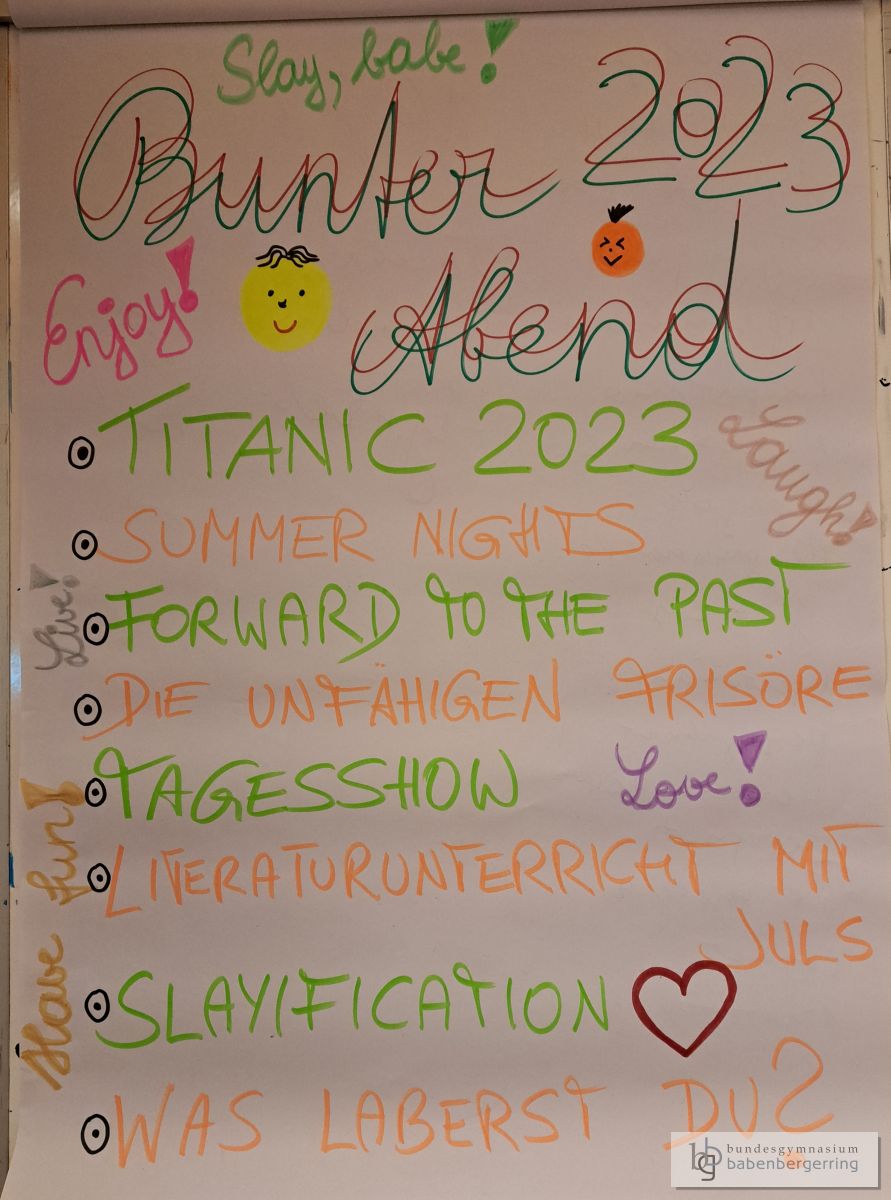 Slay, babe!
Bunter 2023
Abend
Enjoy!
TITANIC 2023
Laugh!
SUMMER NIGHTS
Live!
FORWARD TO THE PAST
DIE UNFÄHIGEN FRISÖRE
TAGESSHOW
Love!
Have fun!
LITERATURUNTERRICHT MIT
JULS
SLAYIFICATION
WAS LABERST DU?
bundesgymnasium
babenbergerring
bg